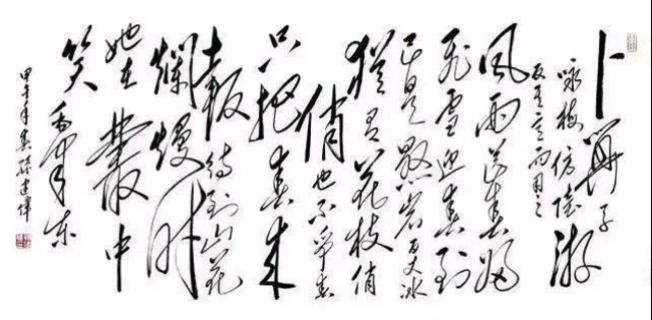 卜算子
咏梅仿陆游
反其意而用之
风雨送春归
飞雪迎春到
已是悬岩百丈冰
犹有花枝俏
俏也不争春
只把春来
报待到山花
烂熳时
她在丛中
笑毛泽东
甲午年春孙建伟